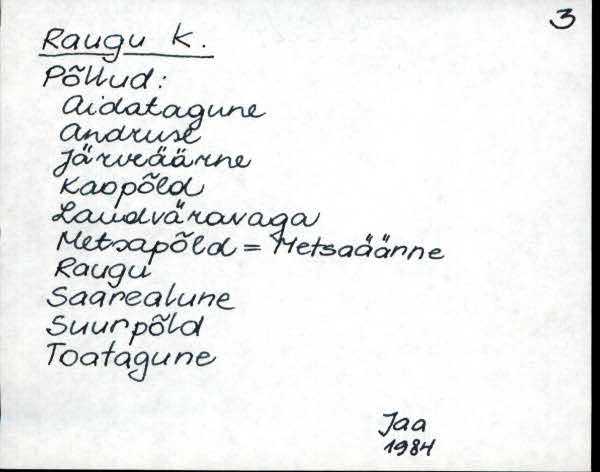 3
Raugu K.
Põllud:
Aidatagune
Andruse
Järveäärne
Kaopõld
Laudväravaga
Metsapõld = Metsaäärne
Raugu
Saarealune
Suurpõld
Toatagune
Jaa
1984